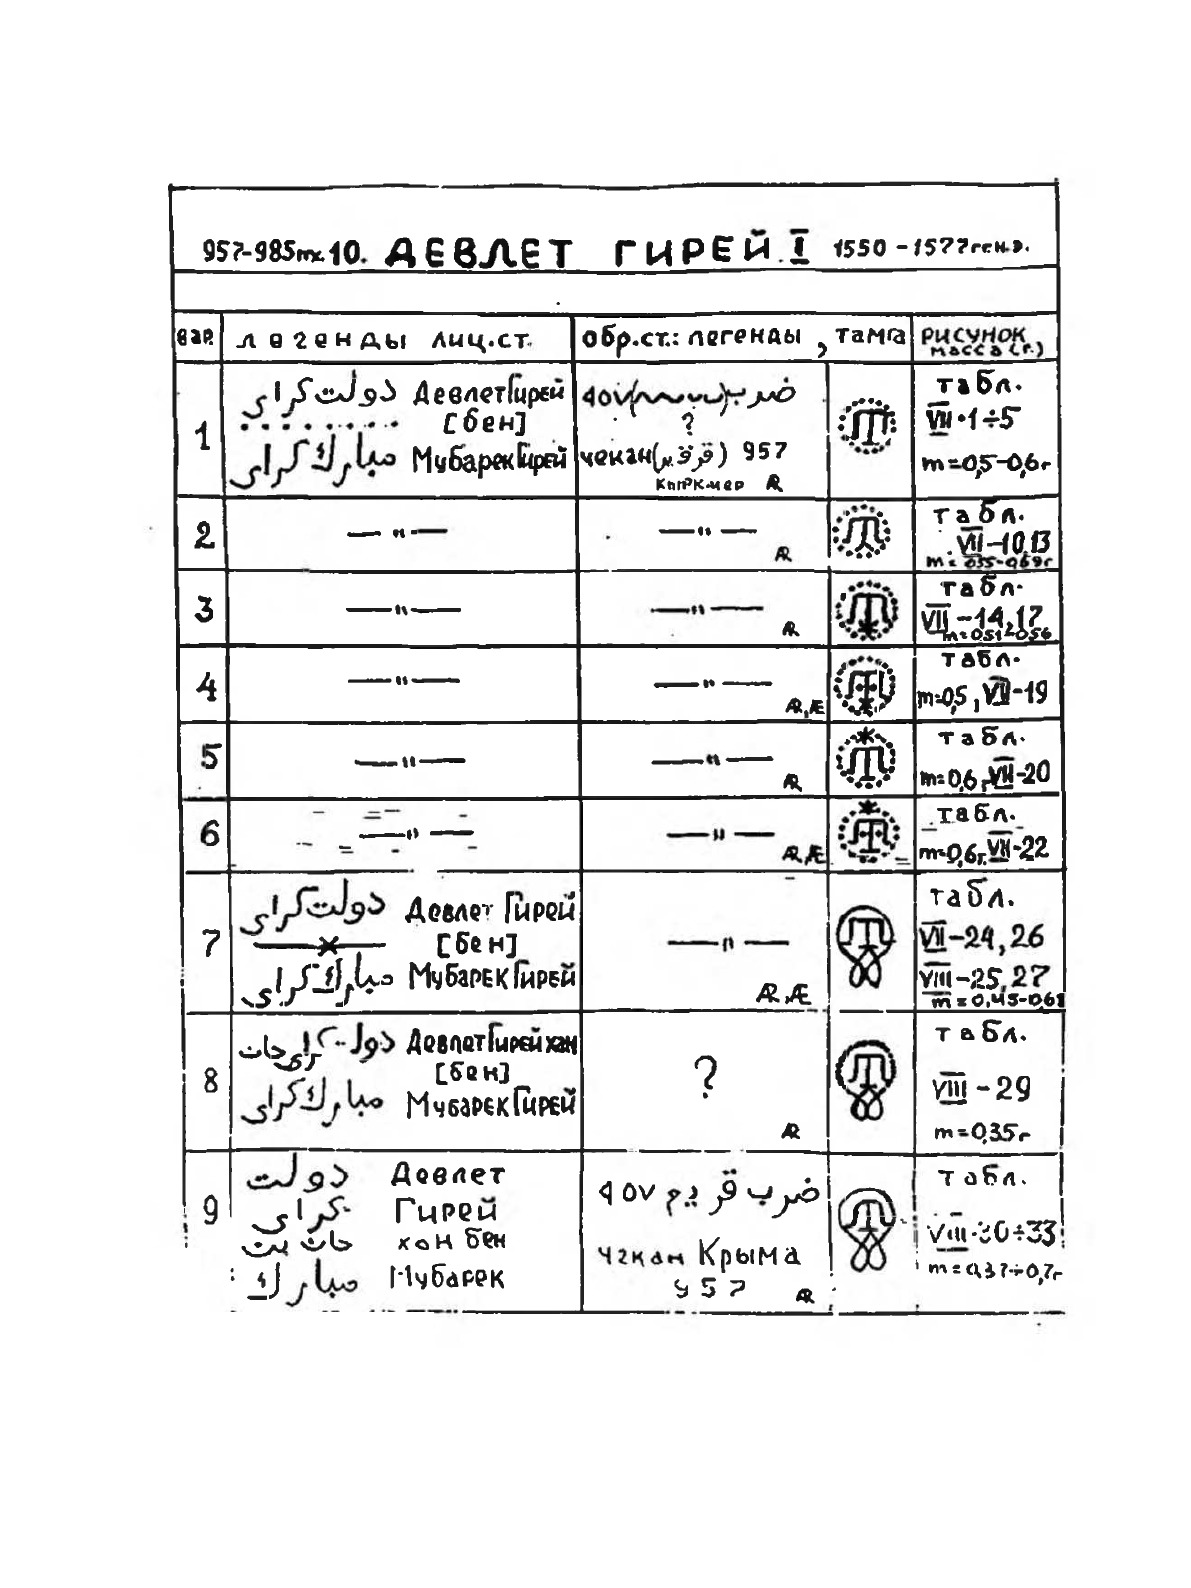 957-985гх. 10. ДЕВЛЕТ ГИРЕЙ I 1550 - 1577гг.н.э.
вар. легенды лиц.ст. обр.ст.: легенды, тамга рисунок масса (г.)
1
دولت كراي Девлет Гирей
[бен]
مبارك كراي Мубарек Гирей
ضرب ( ) ٩٥٧
?
чекан ( ) 957
Кырк-мер AR
табл.
VII·1÷5
m=0,5-0,6г
2 —"— —"— AR
табл.
VII-10,13
m=0,55-0,69г
3 —"— —"— AR
табл.
VII-14,17
m=0,51-0,56
4 —"— —"— AR, Æ
табл.
m=0,5, VII-19
5 —"— —"— AR
табл.
m=0,6г, VII-20
6 —"— —"— AR, Æ
табл.
m=0,6г, VII-22
7
دولت كراي Девлет Гирей
[бен]
مبارك كراي Мубарек Гирей
—"— AR, Æ
табл.
VII-24, 26
VIII-25, 27
m=0,45-0,68
8
دولت كراي خان Девлет Гирей хан
[бен]
مبارك كراي Мубарек Гирей
? AR
табл.
VIII-29
m=0,35г
9
دولت Девлет
كراي Гирей
خان بن хан бен
مبارك Мубарек
ضرب قريم ٩٥٧
чекан Крыма
957 AR
табл.
VIII·30÷33
m=0,37÷0,7г